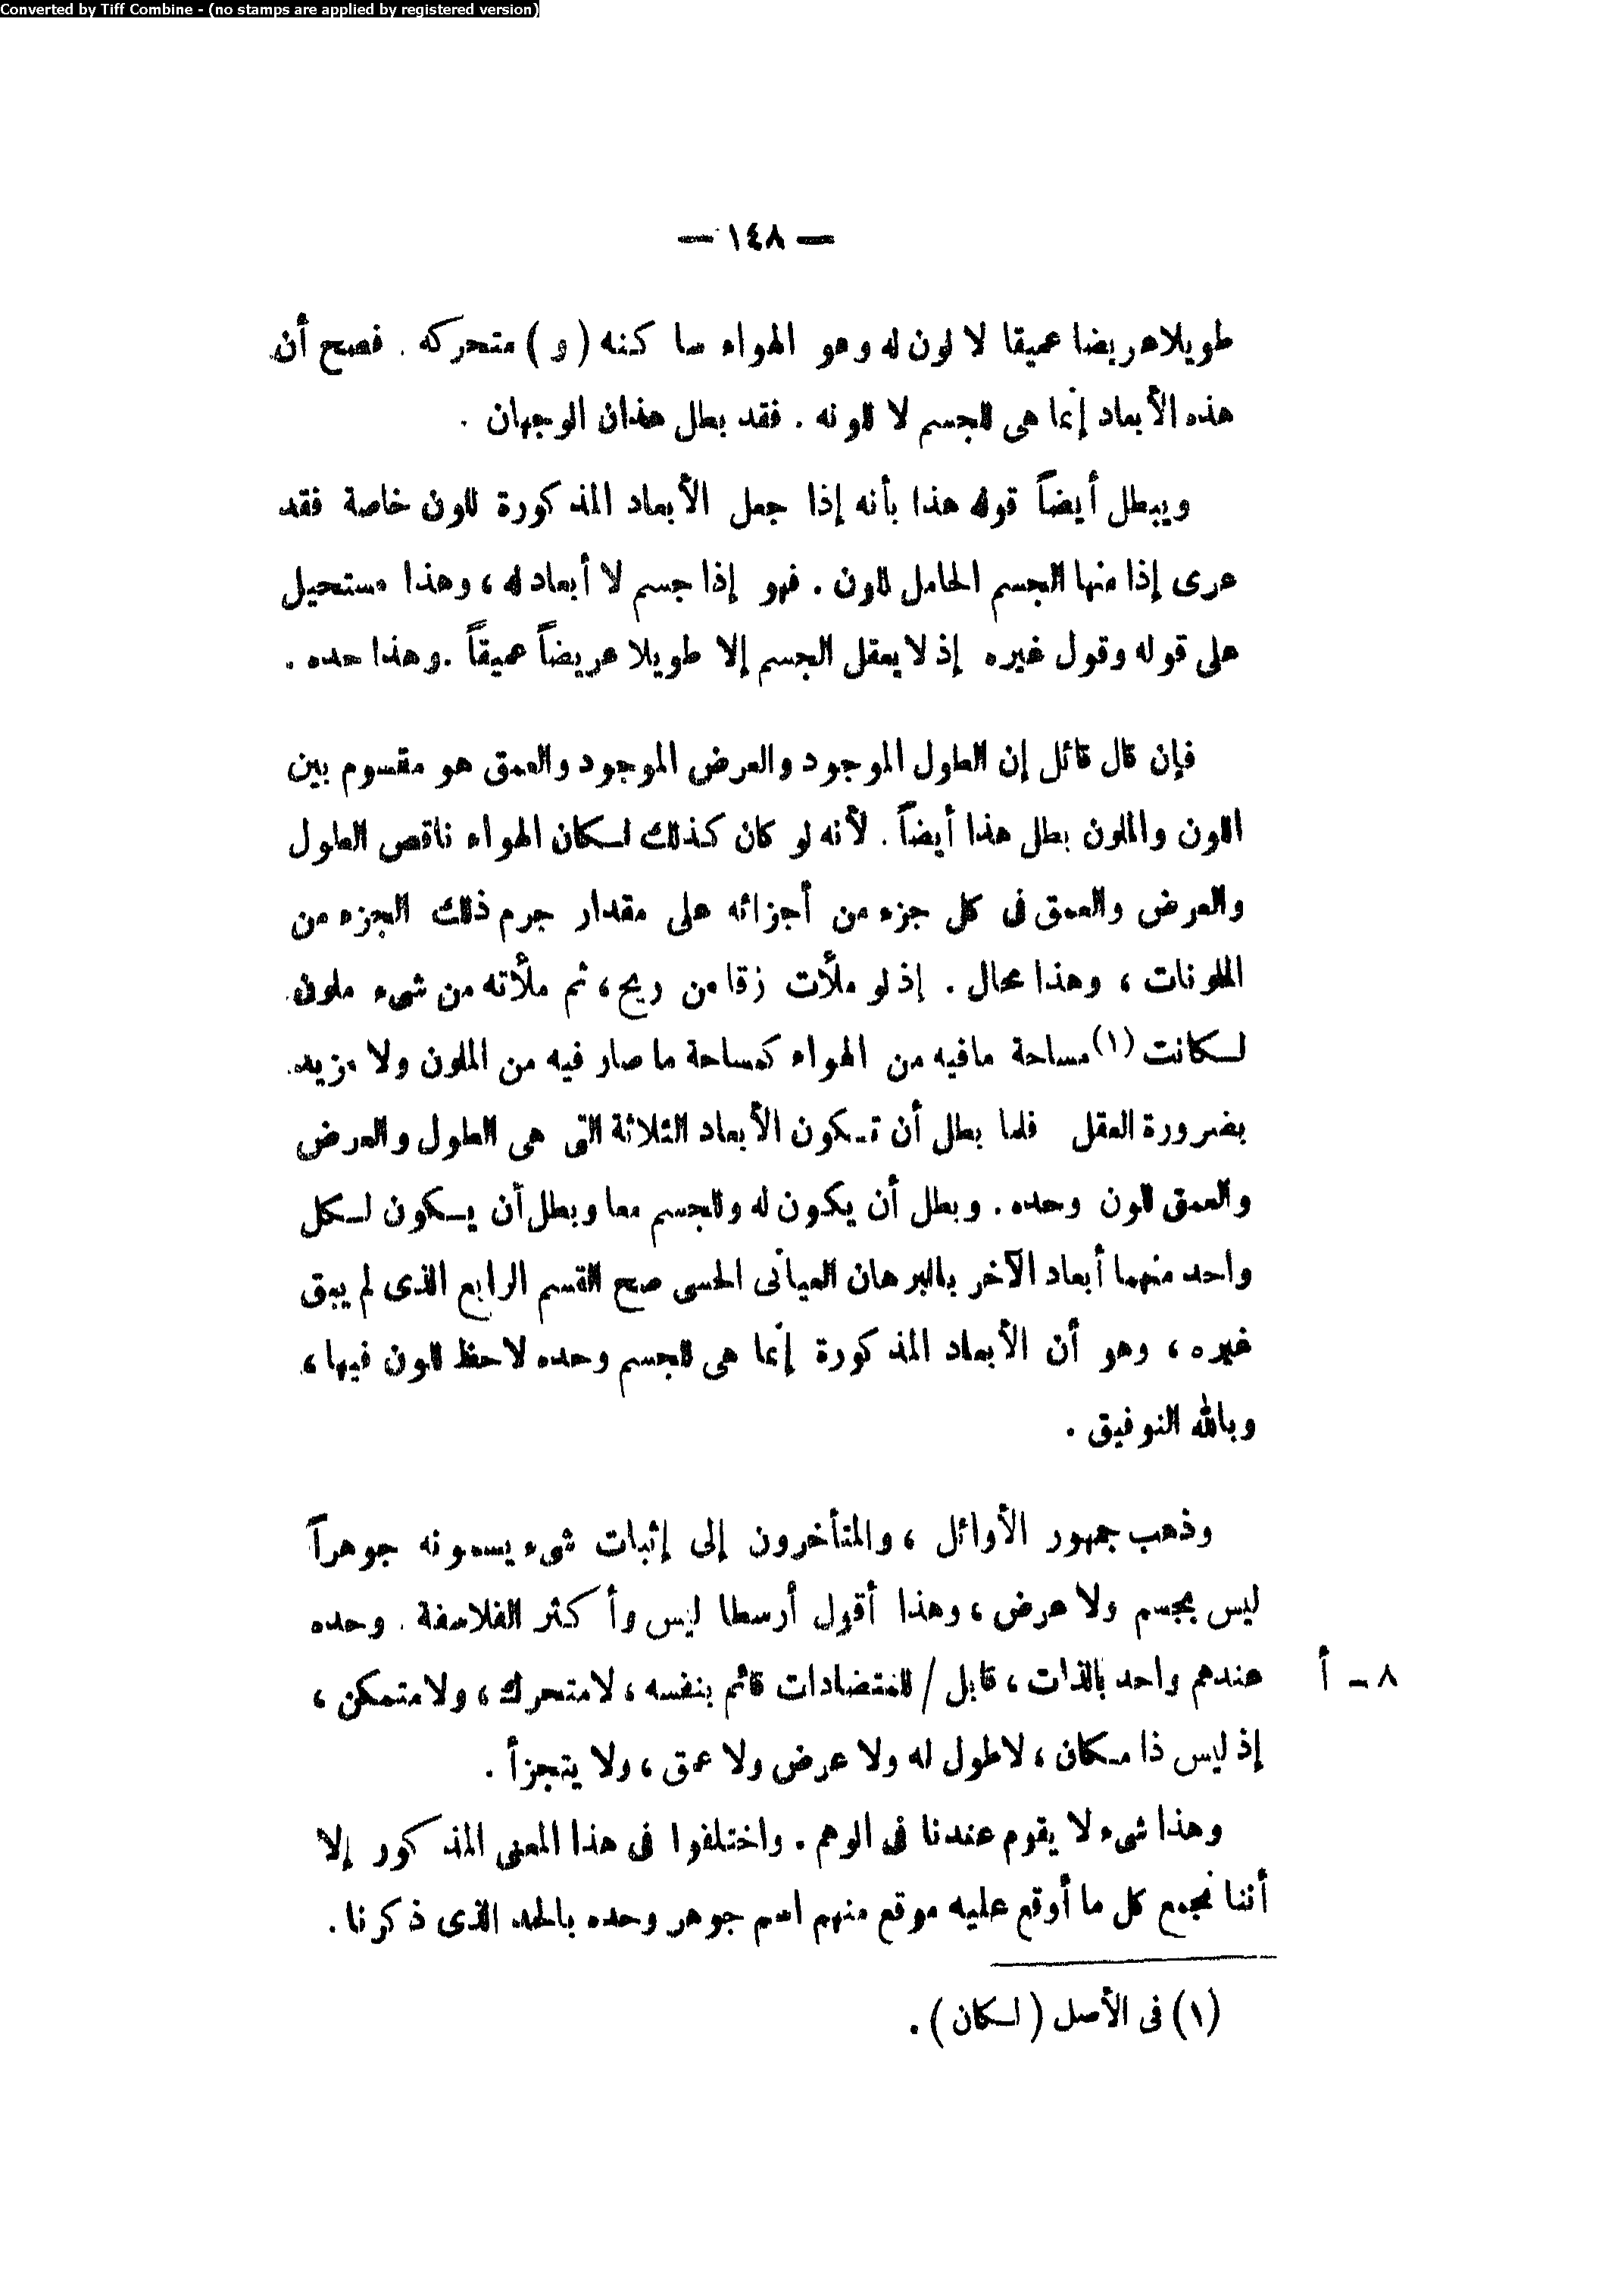 Converted by Tiff Combine - (no stamps are applied by registered version)
— ١٤٨ —
طويلا عريضا عميقا لا لون له وهو الهواء ساكنه (و) متحركه . فصح أن
هذه الأبعاد إنما هى للجسم لا للونه . فقد بطل هذان الوجهان .
ويبطل أيضاً قوله هذا بأنه إذا جعل الأبعاد المذكورة للون خاصة فقد
عرى إذا منها الجسم الحامل للون . فهو إذا جسم لا أبعاد له ، وهذا مستحيل
على قوله وقول غيره إذ لا يعقل الجسم إلا طويلا عريضاً عميقاً . وهذا حده .
فإن قال قائل إن الطول الموجود والعرض الموجود والعمق هو مقسوم بين
اللون والملون بطل هذا أيضاً . لأنه لو كان كذلك لكان الهواء ناقص الطول
والعرض والعمق فى كل جزء من أجزائه على مقدار جرم ذلك الجزء من
الملونات ، وهذا محال . إذ لو ملأت زقا من ريح ، ثم ملأته من شىء ملون
لكانت (١) مساحة ما فيه من الهواء كمساحة ما صار فيه من الملون ولا مزيد
بضرورة العقل فلما بطل أن تكون الأبعاد الثلاثة التى هى الطول والعرض
والعمق للون وحده . وبطل أن يكون له وللجسم معا وبطل أن يكون لكل
واحد منهما أبعاد الآخر بالبرهان العيانى الحسى صح القسم الرابع الذى لم يبق
غيره ، وهو أن الأبعاد المذكورة إنما هى للجسم وحده لا حظ للون فيها ،
وبالله التوفيق .
وذهب جمهور الأوائل ، والمتأخرون إلى إثبات شىء يسمونه جوهراً
ليس بجسم ولا عرض ، وهذا أقول أرسطا ليس وأكثر الفلاسفة . وحده
عندهم واحد بالذات ، قابل / للمتضادات قائم بنفسه ، لا متحرك ، ولا متمكن ،
٨ - أ
إذ ليس ذا مكان ، لا طول له ولا عرض ولا عمق ، ولا يتجزأ .
وهذا شىء لا يقوم عندنا فى الوهم . واختلفوا فى هذا المعنى المذكور إلا
أننا نجمع كل ما أوقع عليه موقع منهم اسم جوهر وحده بالحد الذى ذكرنا .
(١) فى الأصل ( لكان ) .